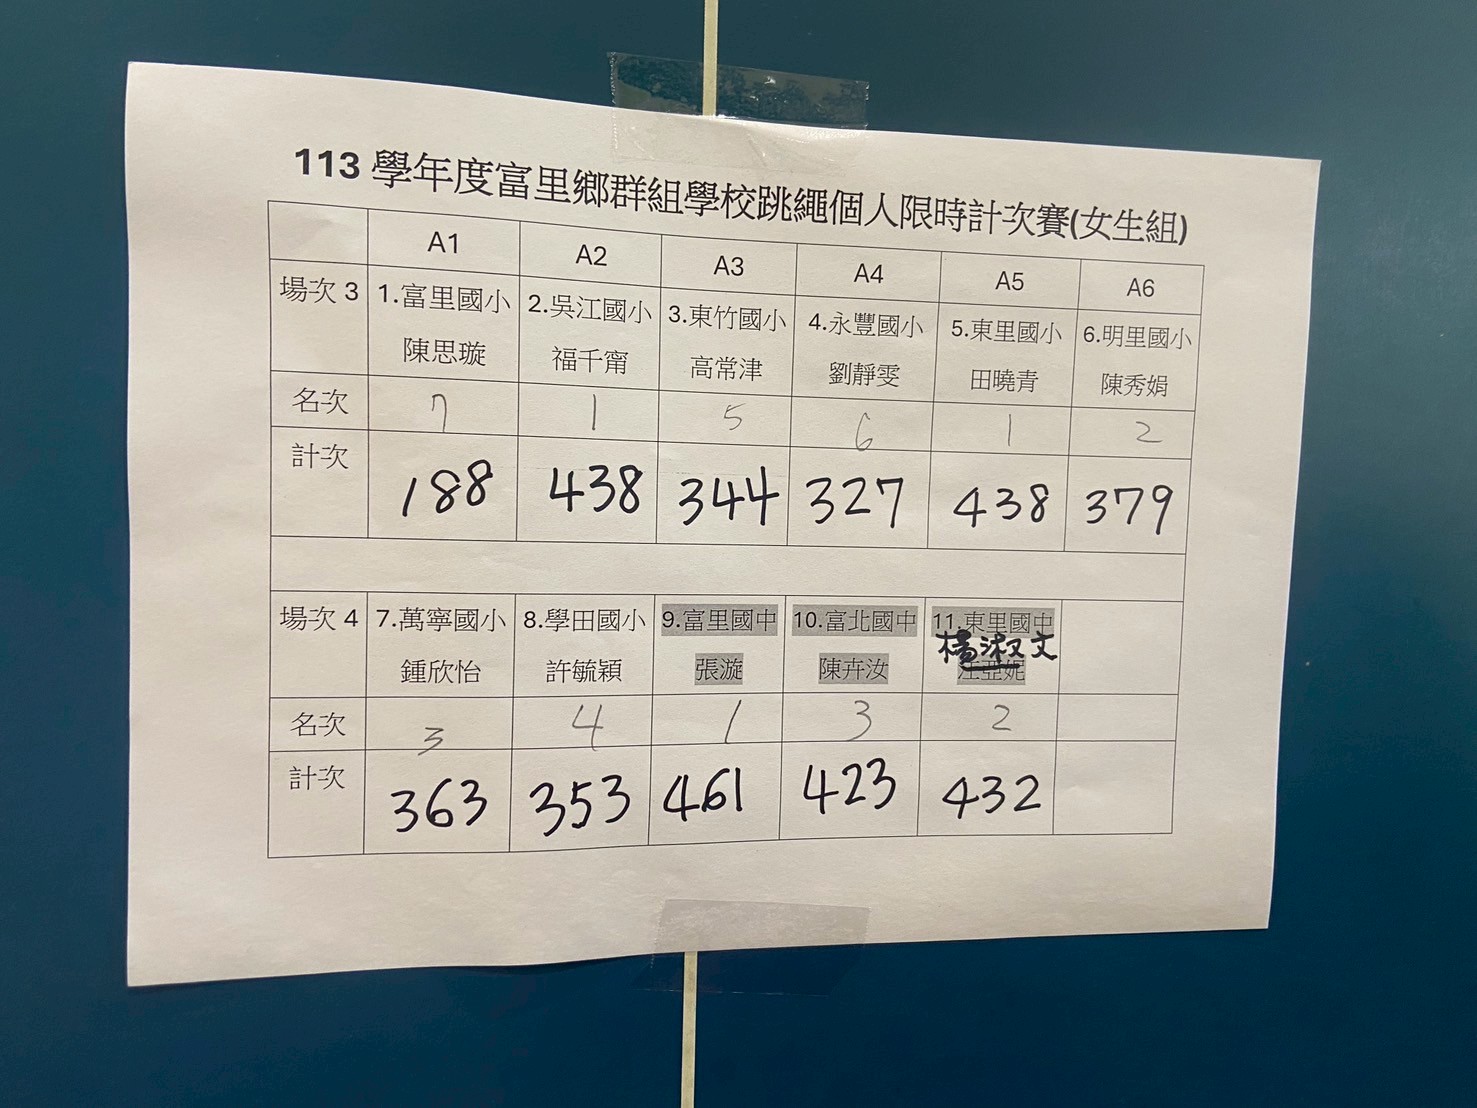 113 學年度富里鄉群組學校跳繩個人限時計次賽(女生組)
A1 A2 A3 A4 A5 A6
場次 3 1.富里國小 2.吳江國小 3.東竹國小 4.永豐國小 5.東里國小 6.明里國小
陳思璇 福千甯 高常津 劉靜雯 田曉青 陳秀娟
名次 7 1 5 6 1 2
計次 188 438 344 327 438 379
場次 4 7.萬寧國小 8.學田國小 9.富里國中 10.富北國中 11.東里國中
楊淑文
鍾欣怡 許毓穎 張漩 陳卉汝 汪亞妮
名次 3 4 1 3 2
計次 363 353 461 423 432